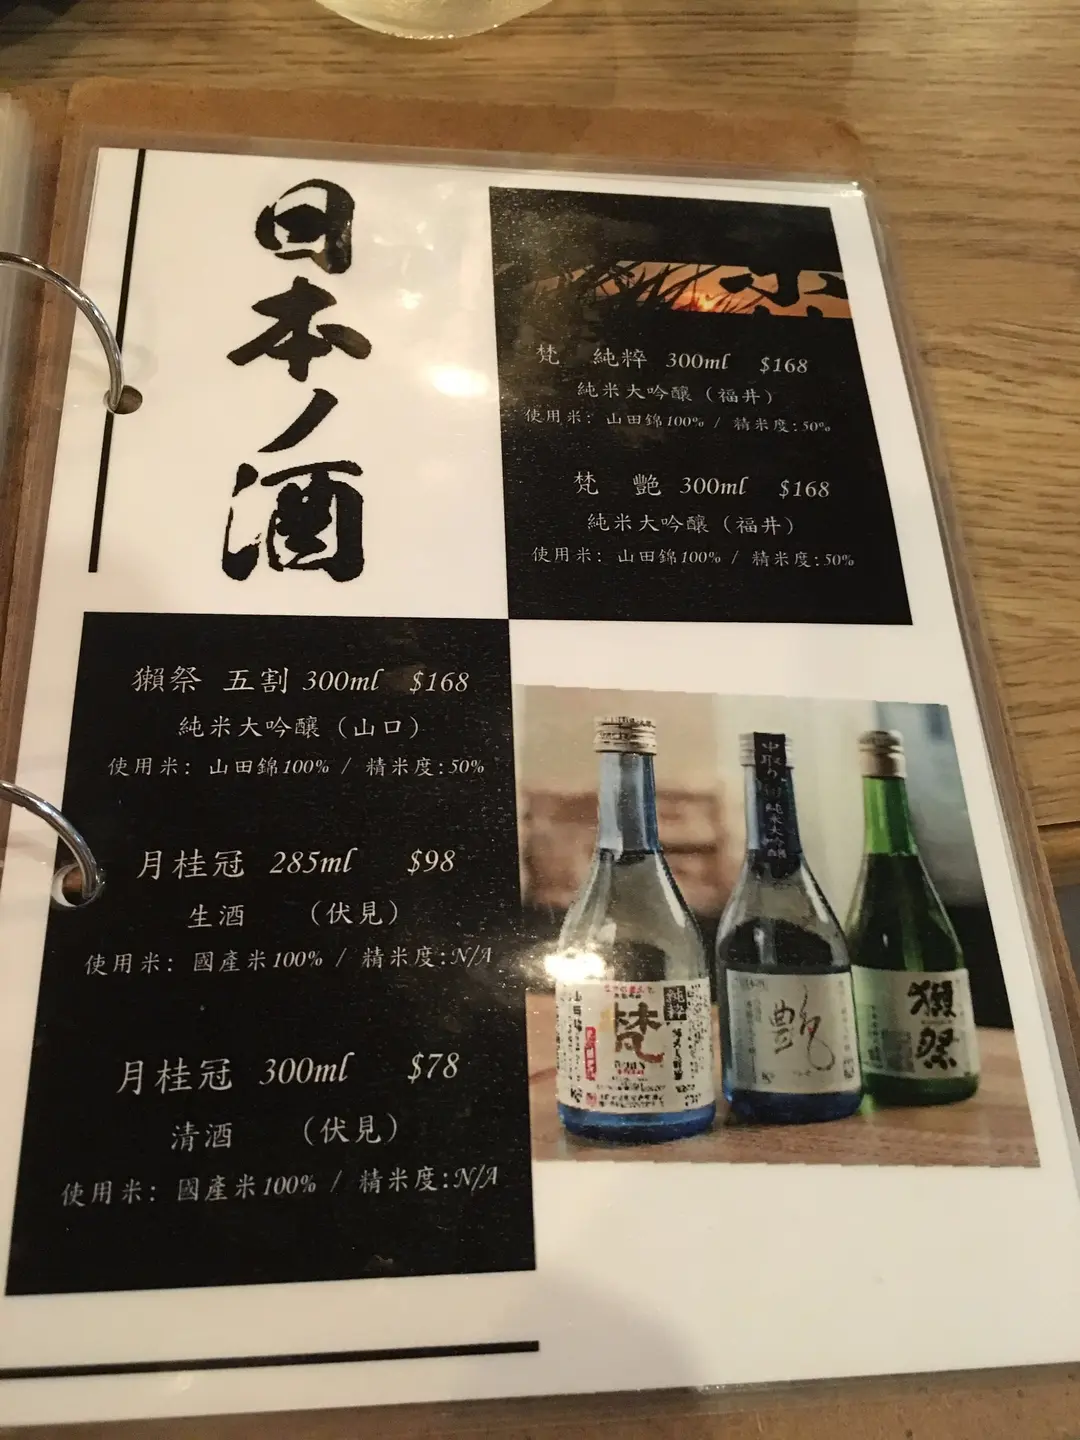 日本ノ酒
梵 純粹 300ml $168
純米大吟釀（福井）
使用米: 山田錦100% / 精米度:50%
梵 艷 300ml $168
純米大吟釀（福井）
使用米: 山田錦100% / 精米度:50%
獺祭 五割 300ml $168
純米大吟釀（山口）
使用米: 山田錦100% / 精米度:50%
月桂冠 285ml $98
生酒 （伏見）
使用米: 國產米100% / 精米度:N/A
月桂冠 300ml $78
清酒 （伏見）
使用米: 國產米100% / 精米度:N/A
純粋
梵
BORN
中取り
純米大吟醸
艶
獺祭